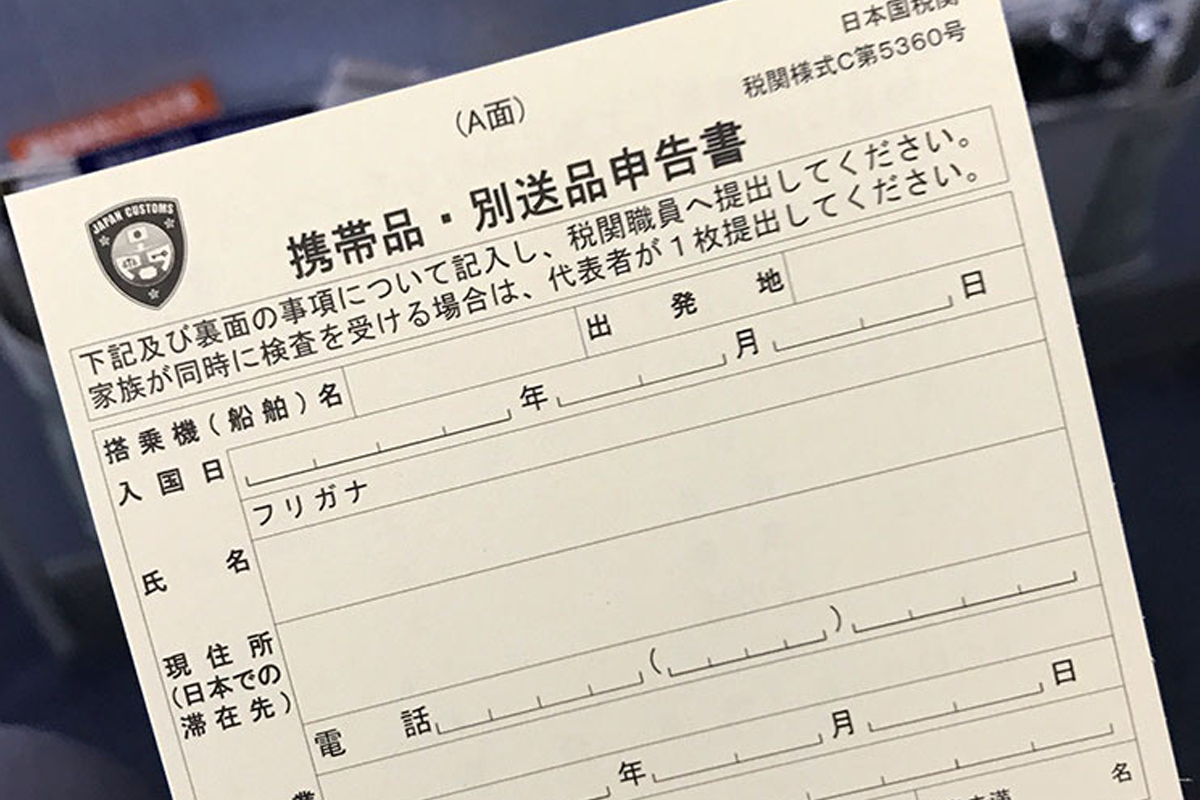 日本国税関
税関様式C第5360号
(A面)
JAPAN CUSTOMS
携帯品・別送品申告書
下記及び裏面の事項について記入し、税関職員へ提出してください。
家族が同時に検査を受ける場合は、代表者が1枚提出してください。
搭乗機(船舶)名 出発地
入国日 年 月 日
フリガナ
氏名
現住所
(日本での
滞在先)
電話 ( )
業
年 月 日
名